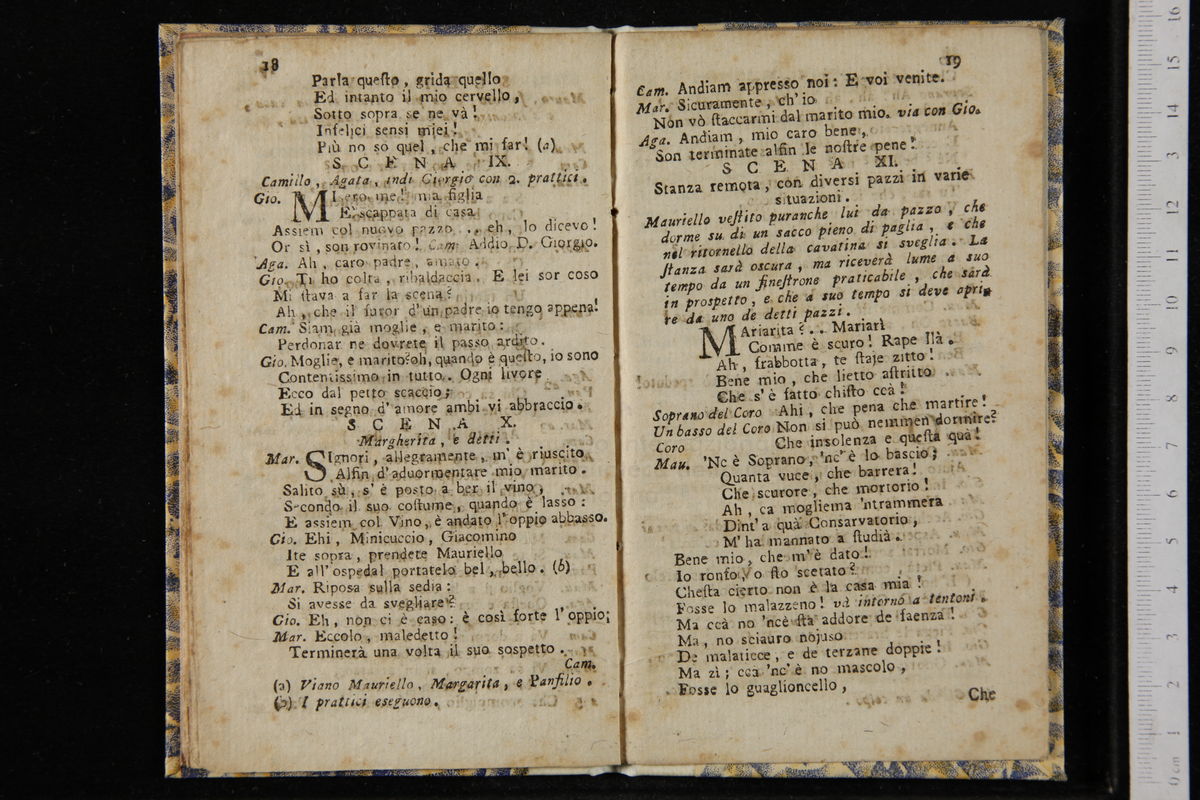 18
Parla queſto, grida quello
Ed intanto il mio cervello,
Sotto sopra se ne và!
Infelici sensi miei!
Più no so quel, che mi far! (a)
SCENA IX.
Camillo, Agata, indi Giorgio con 2. prattici.
Gio. MIsero me! mia figlia
E' scappata di casa
Assiem col nuovo pazzo... eh, lo dicevo!
Or sì, son rovinato! Cam. Addio D. Giorgio.
Aga. Ah, caro padre, amato.
Gio. Ti ho colta, ribaldaccia. E lei sor coso
Mi ſtava a far la scena?
Ah, che il furor d'un padre io tengo appena!
Cam. Siam già moglie, e marito:
Perdonar ne dovrete il passo ardito.
Gio. Moglie, e marito? oh, quando è queſto, io sono
Contentissimo in tutto. Ogni livore
Ecco dal petto scaccio;
Ed in segno d'amore ambi vi abbraccio.
SCENA X.
Margherita, e detti.
Mar. SIgnori, allegramente, m'è riuscito
Alfin d'aduormentare mio marito.
Salito sù, s'è poſto a ber il vino,
Secondo il suo coſtume, quando è lasso:
E assiem col Vino, è andato l'oppio abbasso.
Gio. Ehi, Minicuccio, Giacomino
Ite sopra, prendete Mauriello
E all'ospedal portatelo bel, bello. (b)
Mar. Riposa sulla sedia:
Si avesse da svegliare?
Gio. Eh, non ci è caso: è così forte l'oppio;
Mar. Eccolo, maledetto!
Terminerà una volta il suo sospetto.
Cam.
(a) Viano Mauriello, Margarita, e Panfilio.
(b) I prattici eseguono.
19
Cam. Andiam appresso noi: E voi venite.
Mar. Sicuramente, ch'io
Non vò ſtaccarmi dal marito mio. via con Gio.
Aga. Andiam, mio caro bene,
Son terminate alfin le noſtre pene!
SCENA XI.
Stanza remota, con diversi pazzi in varie
situazioni.
Mauriello veſtito puranche lui da pazzo, che
dorme su di un sacco pieno di paglia, e che
nel ritornello della cavatina si sveglia. La
ſtanza sarà oscura, ma riceverà lume a suo
tempo da un fineſtrone praticabile, che sarà
in prospetto, e che a suo tempo si deve apri-
re da uno de detti pazzi.
MAriarita?.. Mariarì
Comme è scuro! Rape Ilà.
Ah, frabbotta, te ſtaje zitto!
Bene mio, che lietto aſtritto
Che s'è fatto chiſto ccà!
Soprano del Coro Ahi, che pena che martire!
Un basso del Coro Non si può nemmen dormire?
Coro Che insolenza e queſta quà!
Mau. 'Nc è Soprano, 'nc' è lo bascio;
Quanta vuce, che barrera!
Che scurore, che mortorio!
Ah, ca mogliema 'ntrammera
Dint'a quà Conservatorio,
M'ha mannato a ſtudià.
Bene mio, che m'è dato!
Io ronfo, o ſto scetato?
Cheſta cierto non è la casa mia!
Fosse lo malazzeno! và intorno a tentoni.
Ma ccà no 'ncè ſta addore de faenza!
Ma, no sciauro nojuso
De malatiece, e de terzane doppie!
Ma zì; cca 'nc' è no mascolo,
Fosse lo guaglioncello,
Che